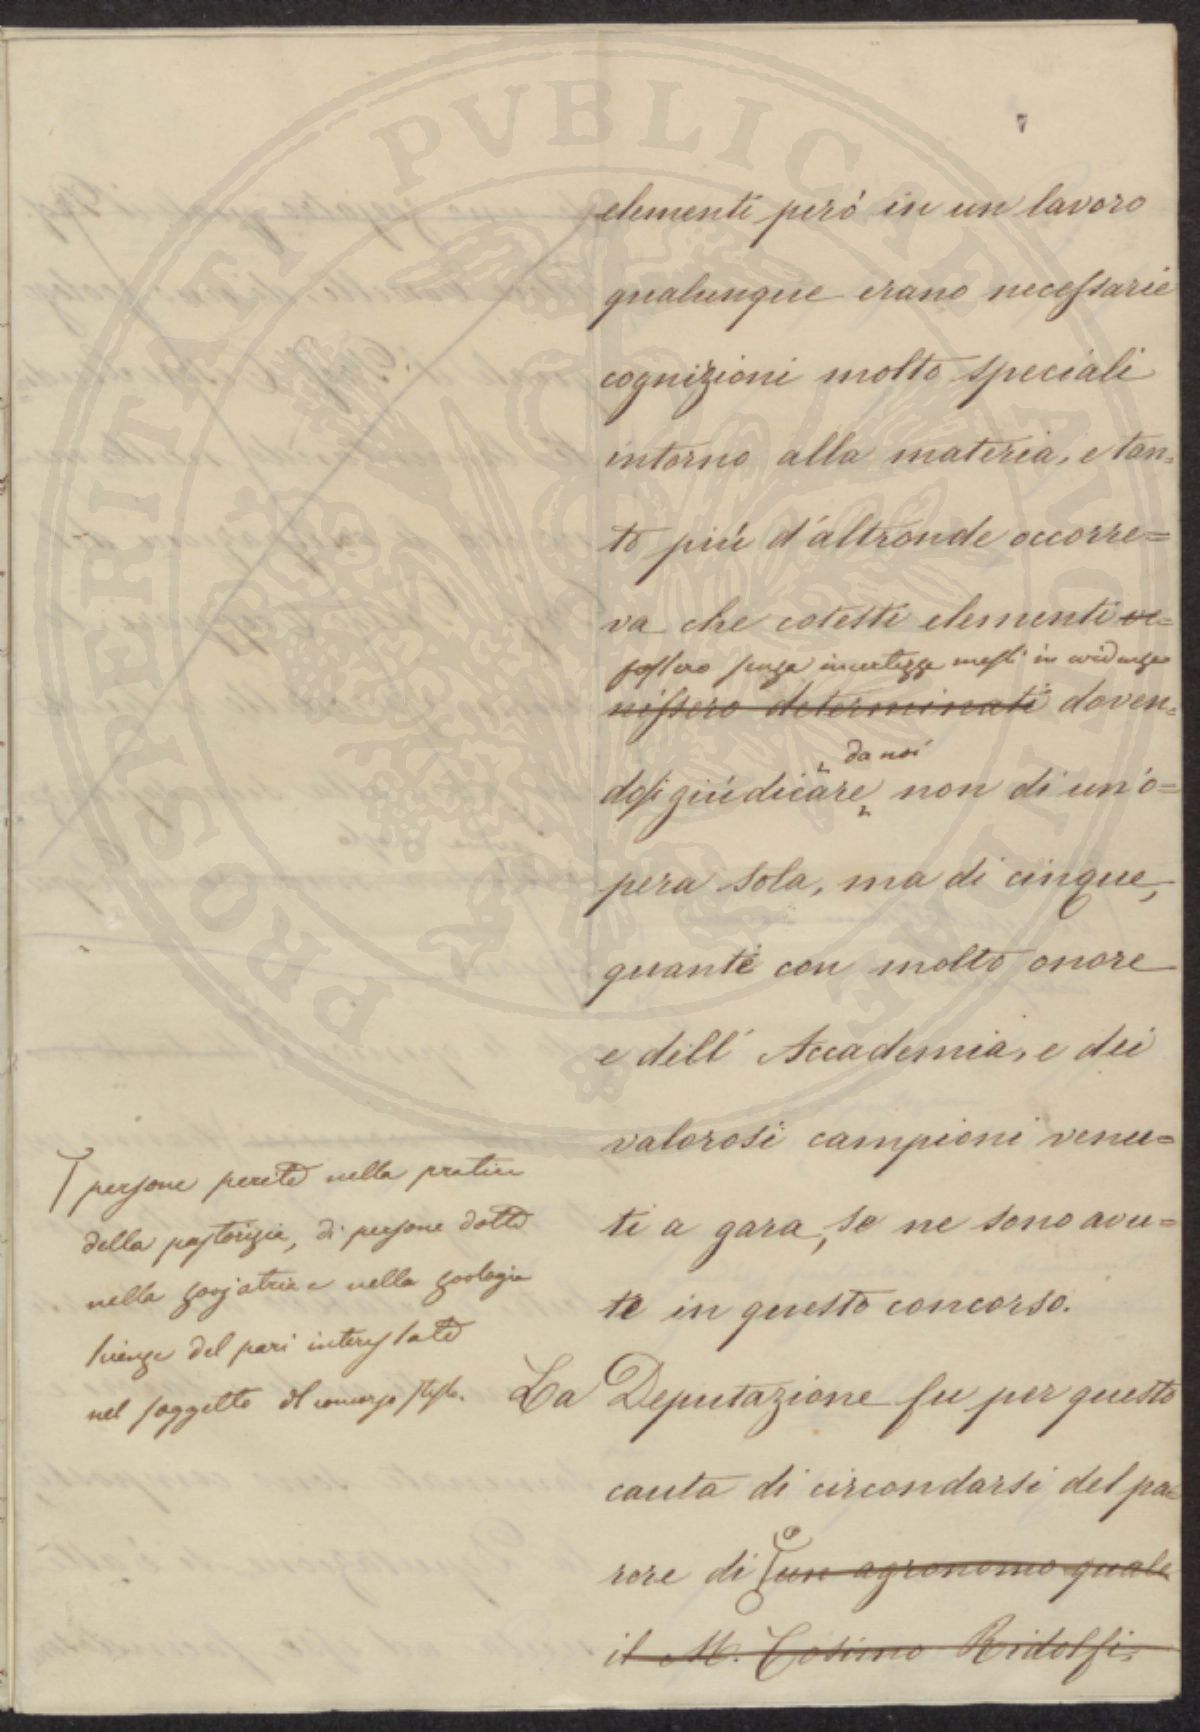 PROSPERITATI PVBLICAE AVGENDAE
7
elementi peró in un lavoro
qualunque erano necessarie
cognizioni molto speciali
intorno alla materia, e tan=
to piú d'altronde occorre=
va che cotesti elementi ve=
fossero senza incertezze messi in evidenza
nissero determinati doven=
dosi giudicare da noi non di un'o=
pera sola, ma di cinque,
quante con molto onore
e dell' Accademia, e dei
valorosi campioni venu=
ti a gara, se ne sono avu=
te in questo concorso.
La Deputazione fu per questo
cauta di circondarsi del pa=
rere di un agronomo quale
il M. Cosimo Ridolfi,
persone perite nella pratica
della pastorizia, di persone dotte
nella zoojatria e nella zoologia
del pari interessate
nel soggetto del concorso stesso.